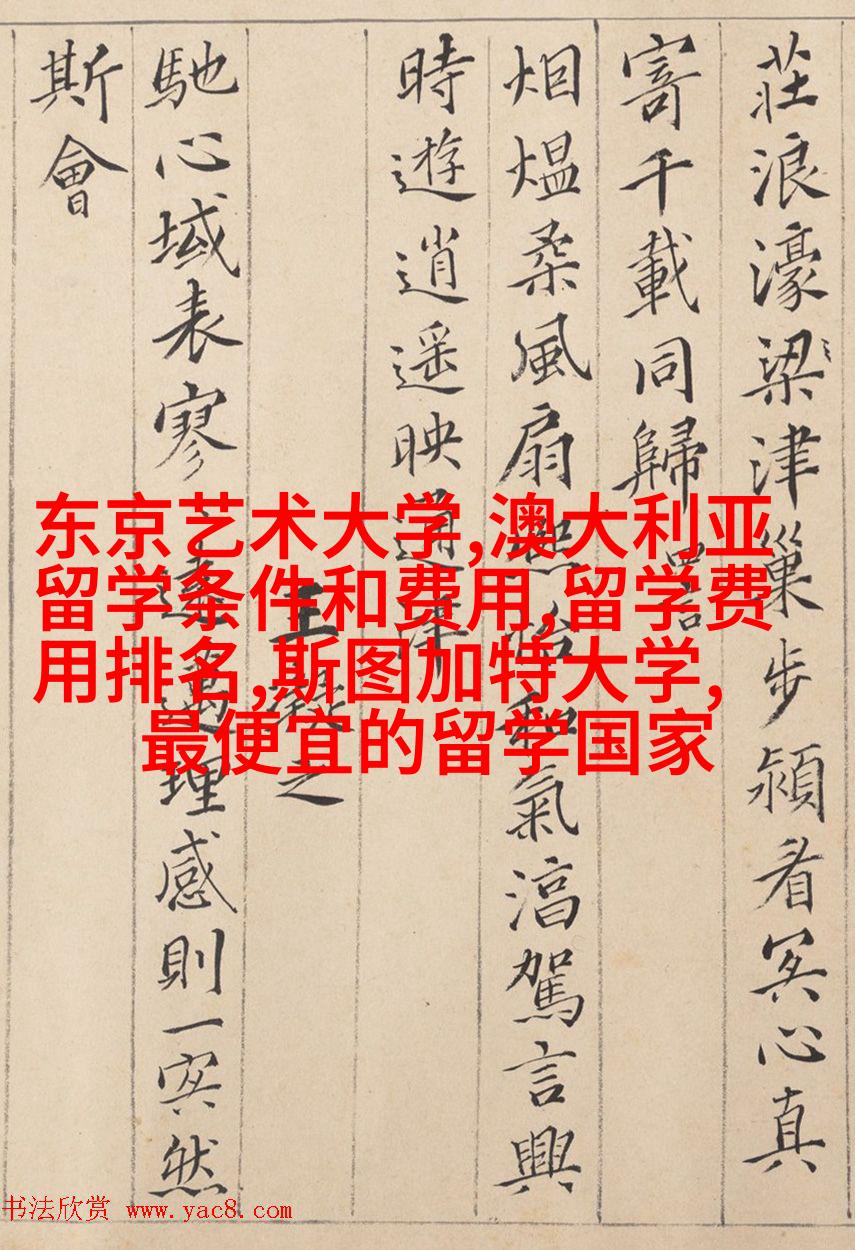 莊浪濠梁津巢步潁眉冥心真
寄千載同歸
烟煴柔風扇熙怡和氣湻駕言興
時遊逍遥映通津
王凝之
馳心域表寥々遠邁理感則一冥然
斯會
东京艺术大学,澳大利亚
留学条件和费用,留学费
用排名,斯图加特大学,
最便宜的留学国家
书法欣赏 www.yac8.com